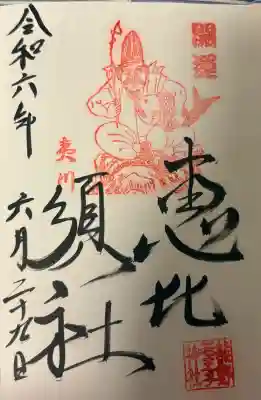 開運
恵比
須社
夷川
令和六年
六月二十九日